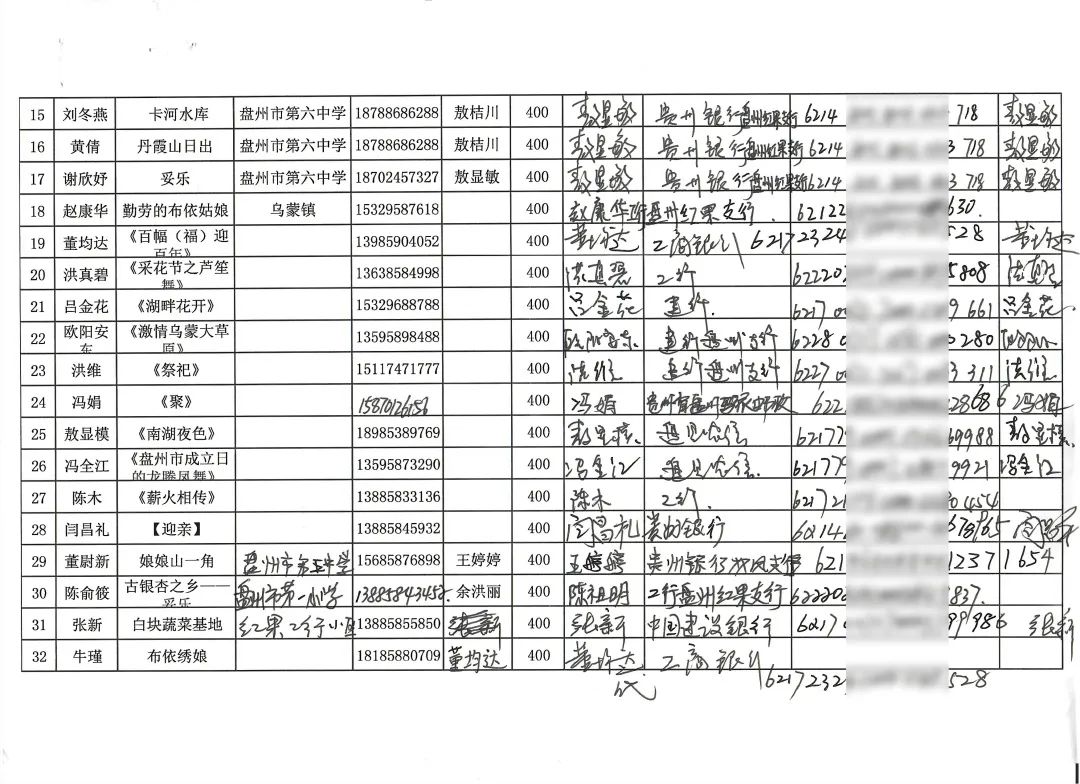 15 刘冬燕 卡河水库 盘州市第六中学 18788686288 敖桔川 400 敖显敏 贵州银行盘州红果支行 6214 718 敖显敏
16 黄倩 丹霞山日出 盘州市第六中学 18788686288 敖桔川 400 敖显敏 贵州银行盘州红果支行 6214 3 718 敖显敏
17 谢欣妤 妥乐 盘州市第六中学 18702457327 敖显敏 400 敖显敏 贵州银行盘州红果支行 6214 3 718 敖显敏
18 赵康华 勤劳的布依姑娘 乌蒙镇 15329587618 400 赵康华 盘州红果支行. 62122 630.
19 董均达 《百幅（福）迎百年》 13985904052 400 董均达 工商银行 62172324 528 董均达
20 洪真碧 《采花节之芦笙舞》 13638584998 400 洪真碧 工行 622202 5808 洪真碧
21 吕金花 《湖畔花开》 15329688788 400 吕金花 建行. 6217 9 661 吕金花
22 欧阳安东 《激情乌蒙大草原》 13595898488 400 欧阳安东 建行盘州支行 62280 5280
23 洪维 《祭祀》 15117471777 400 洪维 建行盘州支行 6227 3 311 洪维
24 冯娟 《聚》 15870126156 400 冯娟 622 28686 冯娟
25 敖显模 《南湖夜色》 18985389769 400 敖显模 62177 69988 敖显模
26 冯全江 《盘州市成立日的龙腾凤舞》 13595873290 400 冯全江 62177 9921 冯全江
27 陈木 《薪火相传》 13885833136 400 陈木 工行 621721 0454
28 闫昌礼 【迎亲】 13885845932 400 闫昌礼 贵州银行 62144 378965
29 董尉新 娘娘山一角 盘州市第五中学 15685876898 王婷婷 400 王婷婷 贵州银行双凤支行 621 12371654
30 陈俞筱 古银杏之乡——妥乐 盘州市第一小学 13885843452. 余洪丽 400 陈祖明 工行盘州红果支行 622202 837.
31 张新 白块蔬菜基地 红果 13885855850 张新 400 张新 中国建设银行 6217 99986 张新
32 牛瑾 布依绣娘 18185880709 董均达 400 董均达 工商银行
代 6217232 528